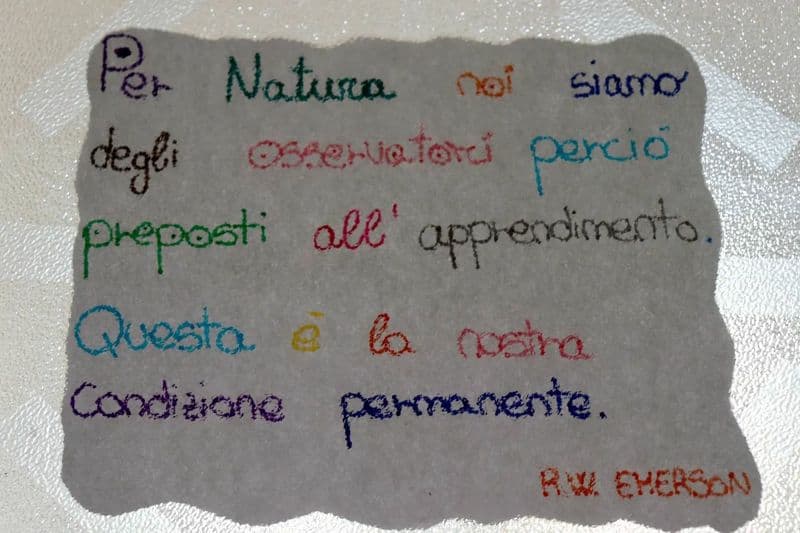 Per Natura noi siamo
degli osservatori perciò
preposti all' apprendimento.
Questa è la nostra
Condizione permanente.
R.W. EMERSON